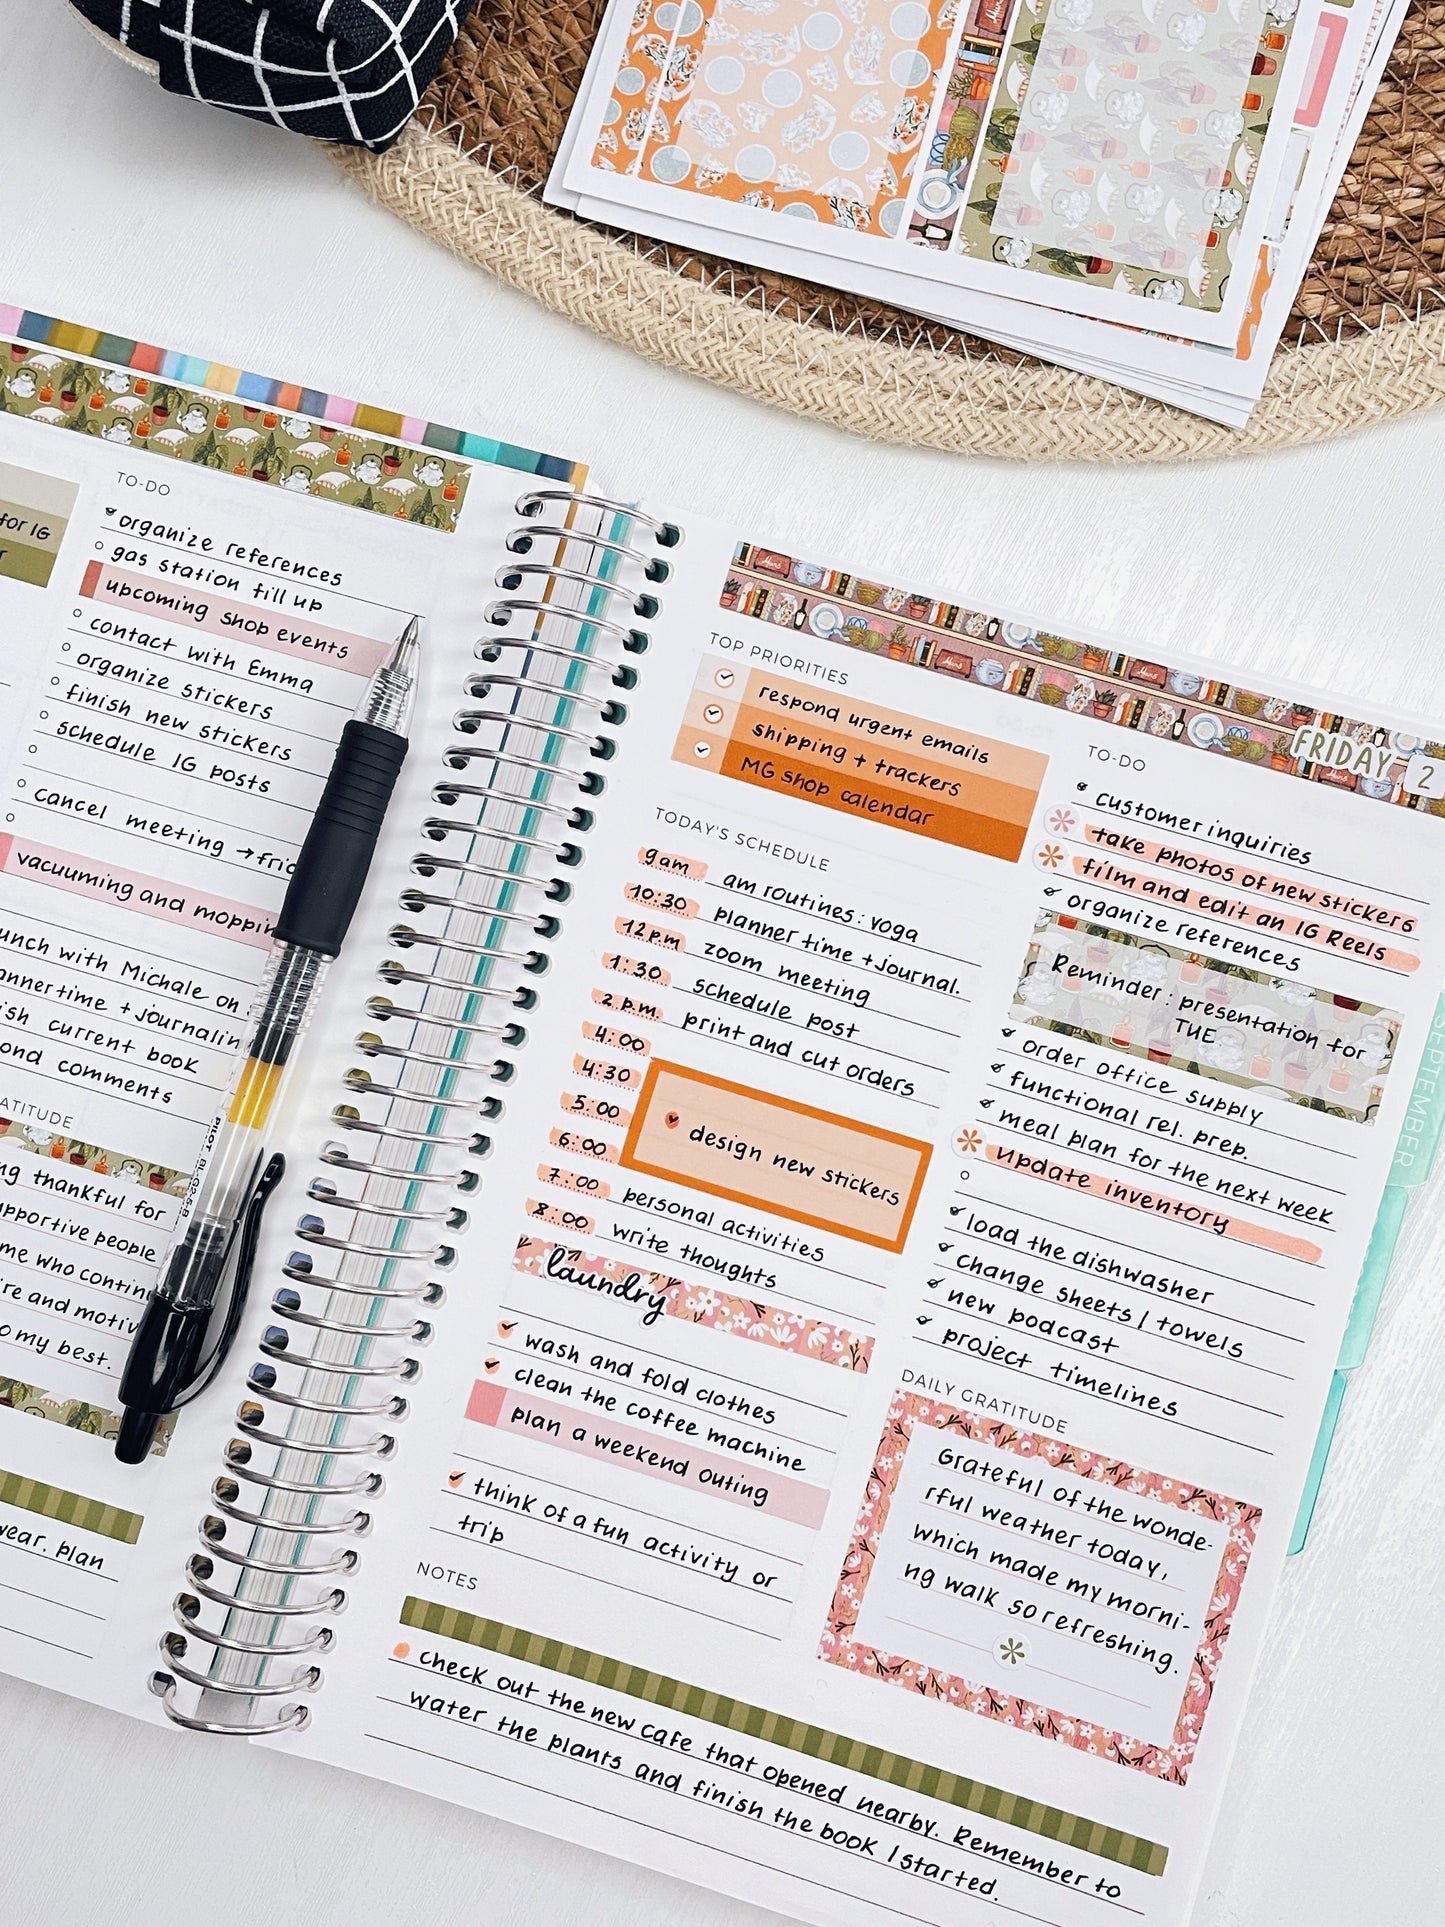 for IG
TO-DO
organize references
gas station fill up
upcoming shop events
contact with Emma
organize stickers
finish new stickers
schedule IG posts
cancel meeting → fri
vacuuming and moppin
unch with Michale on
annertime + journalin
ish current book
ond comments
ATITUDE
ng thankful for
upportive people
me who contin
re and motiv
o my best.
wear. plan
PILOT BL-G2-5-B
TOP PRIORITIES
respond urgent emails
shipping + trackers
MG shop calendar
TODAY'S SCHEDULE
9am am routines: yoga
10:30 planner time + journal.
12p.m zoom meeting
1:30 schedule post
2p.m. print and cut orders
4:00
4:30
5:00 design new stickers
6:00
7:00 personal activities
8:00 write thoughts
laundry
wash and fold clothes
clean the coffee machine
plan a weekend outing
think of a fun activity or
trip
FRIDAY 2
TO-DO
customer inquiries
take photos of new stickers
film and edit an IG Reels
organize references
Reminder: presentation for
TUE
order office supply
functional rel. prep.
meal plan for the next week
update inventory
load the dishwasher
change sheets / towels
new podcast
project timelines
DAILY GRATITUDE
Grateful of the wonde-
rful weather today,
which made my morni-
ng walk so refreshing.
NOTES
check out the new cafe that opened nearby. Remember to
water the plants and finish the book I started.
SEPTEMBER